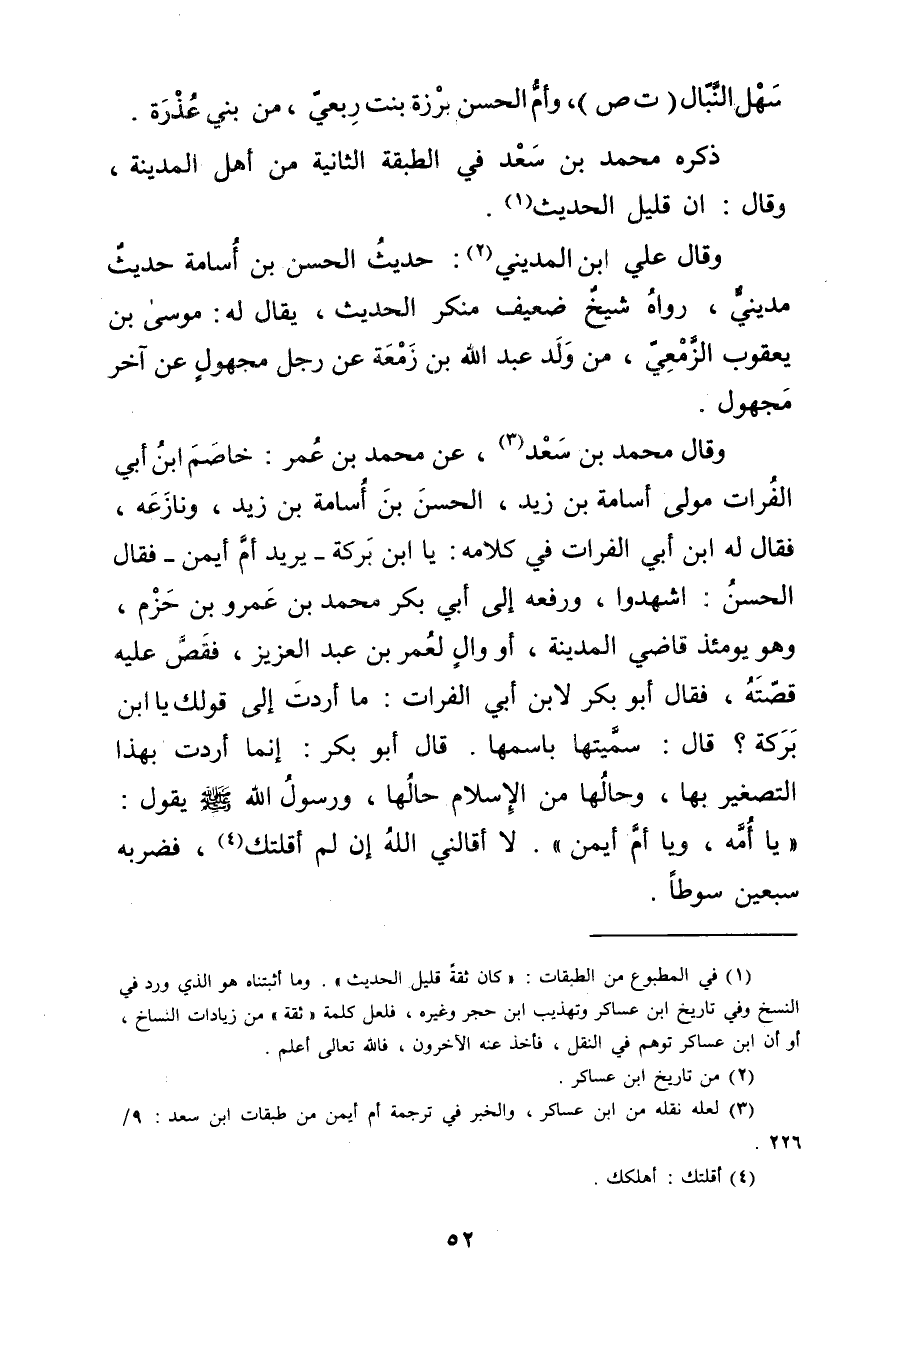 سَهْل النَّبّال ( ت ص )، وأمُّ الحسن برْزة بنت رِبعيّ ، من بني عُذْرَة .
ذكره محمد بن سَعْد في الطبقة الثانية من أهل المدينة ،
وقال : ان قليل الحديث(١) .
وقال علي ابن المديني(٢) : حديثُ الحسن بن أُسامة حديثٌ
مدينيٌّ ، رواهُ شيخٌ ضعيف منكر الحديث ، يقال له : موسىٰ بن
يعقوب الزَّمْعِيّ ، من وَلَد عبد الله بن زَمْعَة عن رجل مجهولٍ عن آخر
مَجهول .
وقال محمد بن سَعْد(٣) ، عن محمد بن عُمر : خاصَمَ ابنُ أبي
الفُرات مولى أسامة بن زيد ، الحسنَ بنَ أُسامة بن زيد ، ونازَعَه ،
فقال له ابن أبي الفرات في كلامه : يا ابن بَركة ـ يريد أمَّ أيمن ـ فقال
الحسنُ : اشهدوا ، ورفعه إلى أبي بكر محمد بن عَمرو بن حَزْم ،
وهو يومئذ قاضي المدينة ، أو والٍ لعُمر بن عبد العزيز ، فقَصَّ عليه
قصّتَهُ ، فقال أبو بكر لابن أبي الفرات : ما أردتَ إلى قولك يا ابن
بَرَكة ؟ قال : سمَّيتها باسمها . قال أبو بكر : إنما أردت بهذا
التصغير بها ، وحالُها من الإِسلام حالُها ، ورسولُ الله ﷺ يقول :
« يا أُمَّه ، ويا أمَّ أيمن » . لا أقالني اللهُ إن لم أقلتك(٤) ، فضربه
سبعين سوطاً .
(١) في المطبوع من الطبقات : « كان ثقةً قليل الحديث » . وما أثبتناه هو الذي ورد في
النسخ وفي تاريخ ابن عساكر وتهذيب ابن حجر وغيره ، فلعل كلمة « ثقة » من زيادات النساخ ،
أو أن ابن عساكر توهم في النقل ، فأخذ عنه الآخرون ، فالله تعالى أعلم .
(٢) من تاريخ ابن عساكر .
(٣) لعله نقله من ابن عساكر ، والخبر في ترجمة أم أيمن من طبقات ابن سعد : ٩/
٢٢٦ .
(٤) أقلتك : أهلكك .
٥٢